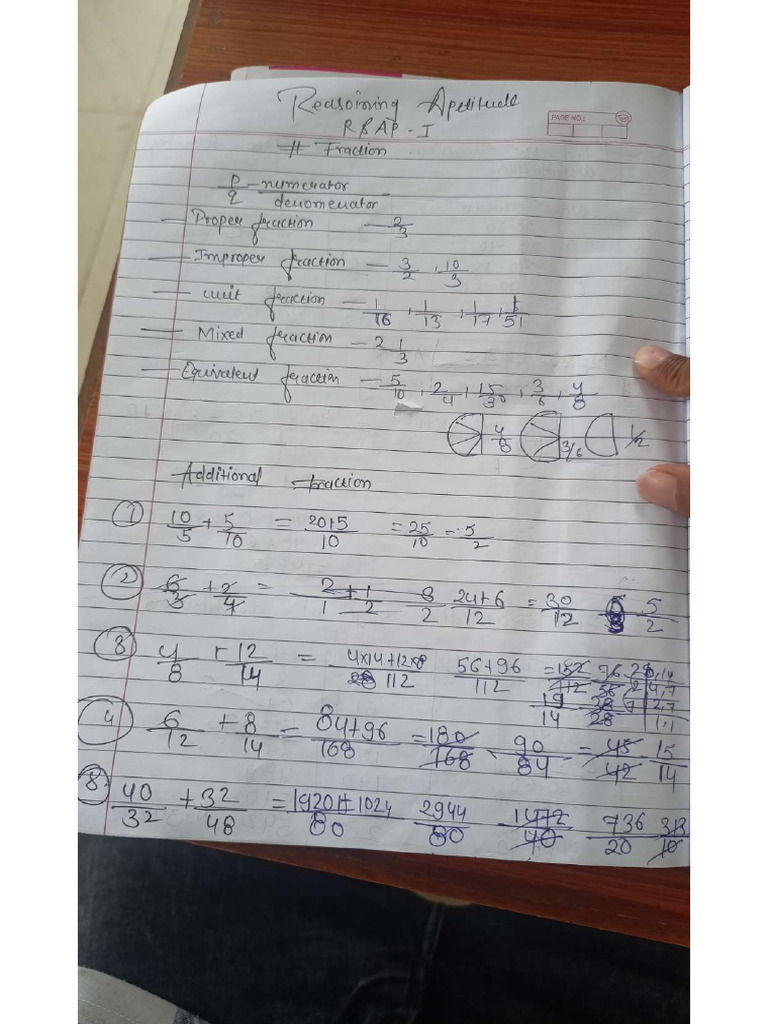 Reasoining Apetitude
PAGE NO.:
RSAP - I
# Fraction
P/q - numerator/denomenator
- Proper fraction - 2/3
- Improper fraction - 3/2, 10/3
- unit fraction - 1/16, 1/13, 1/17, 1/51
- Mixed fraction - 2 1/3
- Equivalent fraction - 5/10, 2/4, 15/30, 3/6, 4/8
4/8 3/6 1/2
Additional fraction
① 10/5 + 5/10 = 20+5/10 = 25/10 = 5/2
② 6/3 + 2/4 = 2/1 + 1/2 24+6/12 = 30/12 5/2
③ 4/8 + 12/14 = 4x14+12x8/112 56+96/112 = 152/112 76/56
19/14 38/28
4 6/12 + 8/14 = 84+96/168 = 180/168 90/84 = 45/42 15/14
8. 40/32 + 32/48 = 1920+1024/80 2944/80 1472/40 736/20 313/10